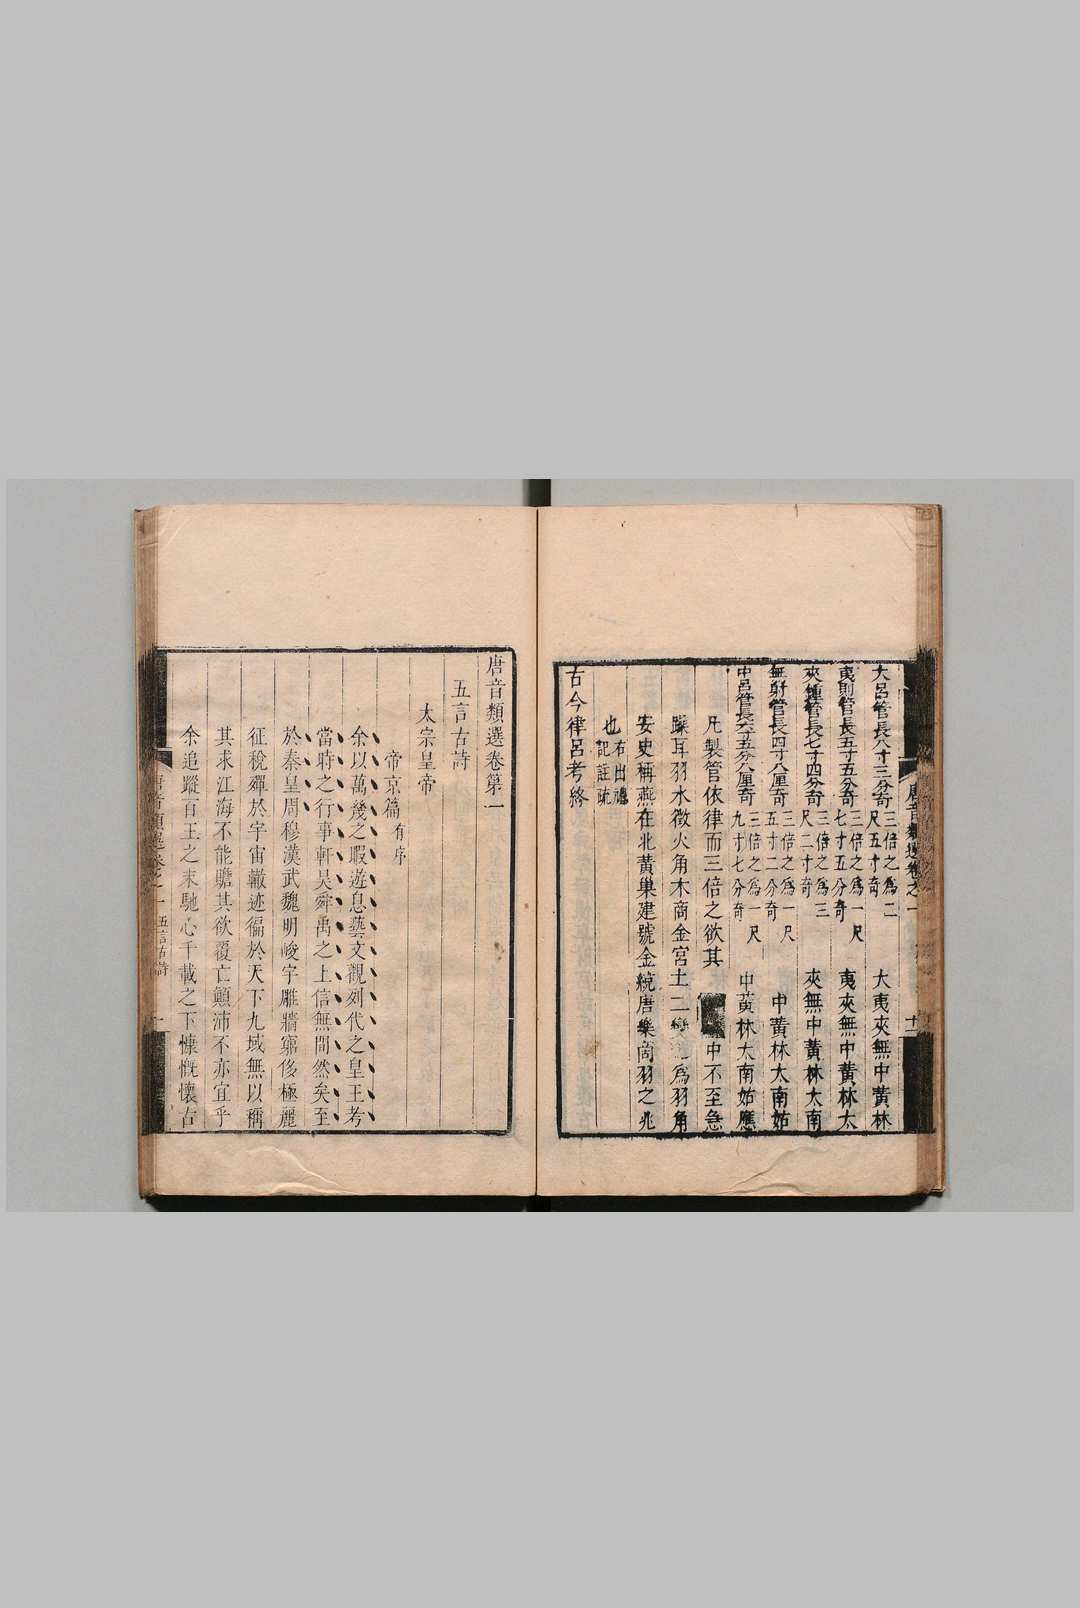 大呂管長八寸三分奇三倍之爲二尺五寸奇 大夷夾無中黃林
夷則管長五寸五分奇三倍之爲一尺七寸五分奇 夷夾無中黃林太
夾鍾管長七寸四分奇三倍之爲三尺二寸奇 夾無中黃林太南
無射管長四寸八厘奇三倍之爲一尺五寸二分奇 中黃林太南姑
中呂管長六寸五分八厘奇三倍之爲一尺九寸七分奇 中黃林太南姑應
凡製管依律而三倍之欲其中不至急
躁耳羽水徵火角木商金宮土二變爲羽角
安史稱燕在北黃巢建號金統唐樂商羽之兆
也右出禮記註疏
古今律呂考終
唐音類選卷之一
十
唐音類選卷第一
五言古詩
太宗皇帝
帝京篇有序
余以萬幾之暇遊息藝文觀列代之皇王考
當時之行事軒昊舜禹之上信無間然矣至
於秦皇周穆漢武魏明峻宇雕牆窮侈極麗
征稅殫於宇宙轍迹徧於天下九域無以稱
其求江海不能贍其欲覆亡顛沛不亦宜乎
余追蹤百王之末馳心千載之下慷慨懷古
唐音類選卷之一 五言古詩 一